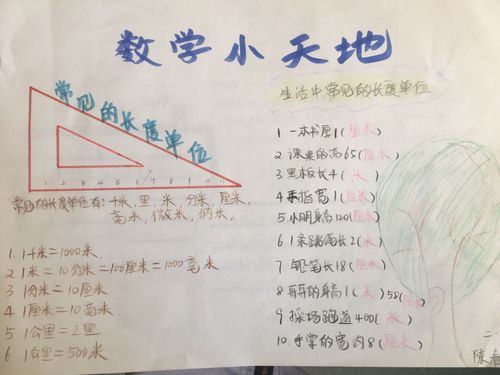 数学小天地
常见的长度单位
1 2 3 4 5 6 7 8 9 10 11
常见的长度单位有：千米，里，米，分米，厘米，
毫米，微米，纳米。
1. 1千米=1000米.
2 1米=10分米=100厘米=1000毫米
3 1分米=10厘米
4 1厘米=10毫米
5 1公里=2里
6 1公里=500米
生活中常见的长度单位
1 一本书厚1(厘米)
2 课桌的高65(厘米)
3 黑板长4(米)
4 手指宽1(厘米)
5 小明身高120(厘米)
6 1条跳绳长2(米)
7 铅笔长18(厘米)
8 哥哥的身高1(米)58(厘米)
9 操场跑道400(米)
10. 手掌的宽约8(厘米)
二
陈